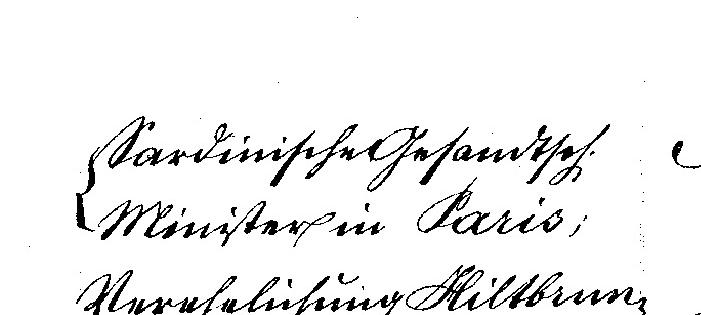 Sardinische Gesandtsch.
Minister in Paris;
Verehelichung Hiltbrun-